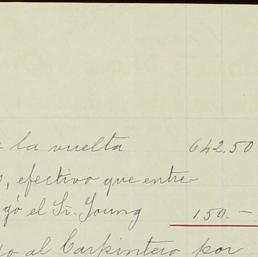 la vuelta 642.50
efectivo que entre-
gó el Sr. Young 150.-
al Carpintero por